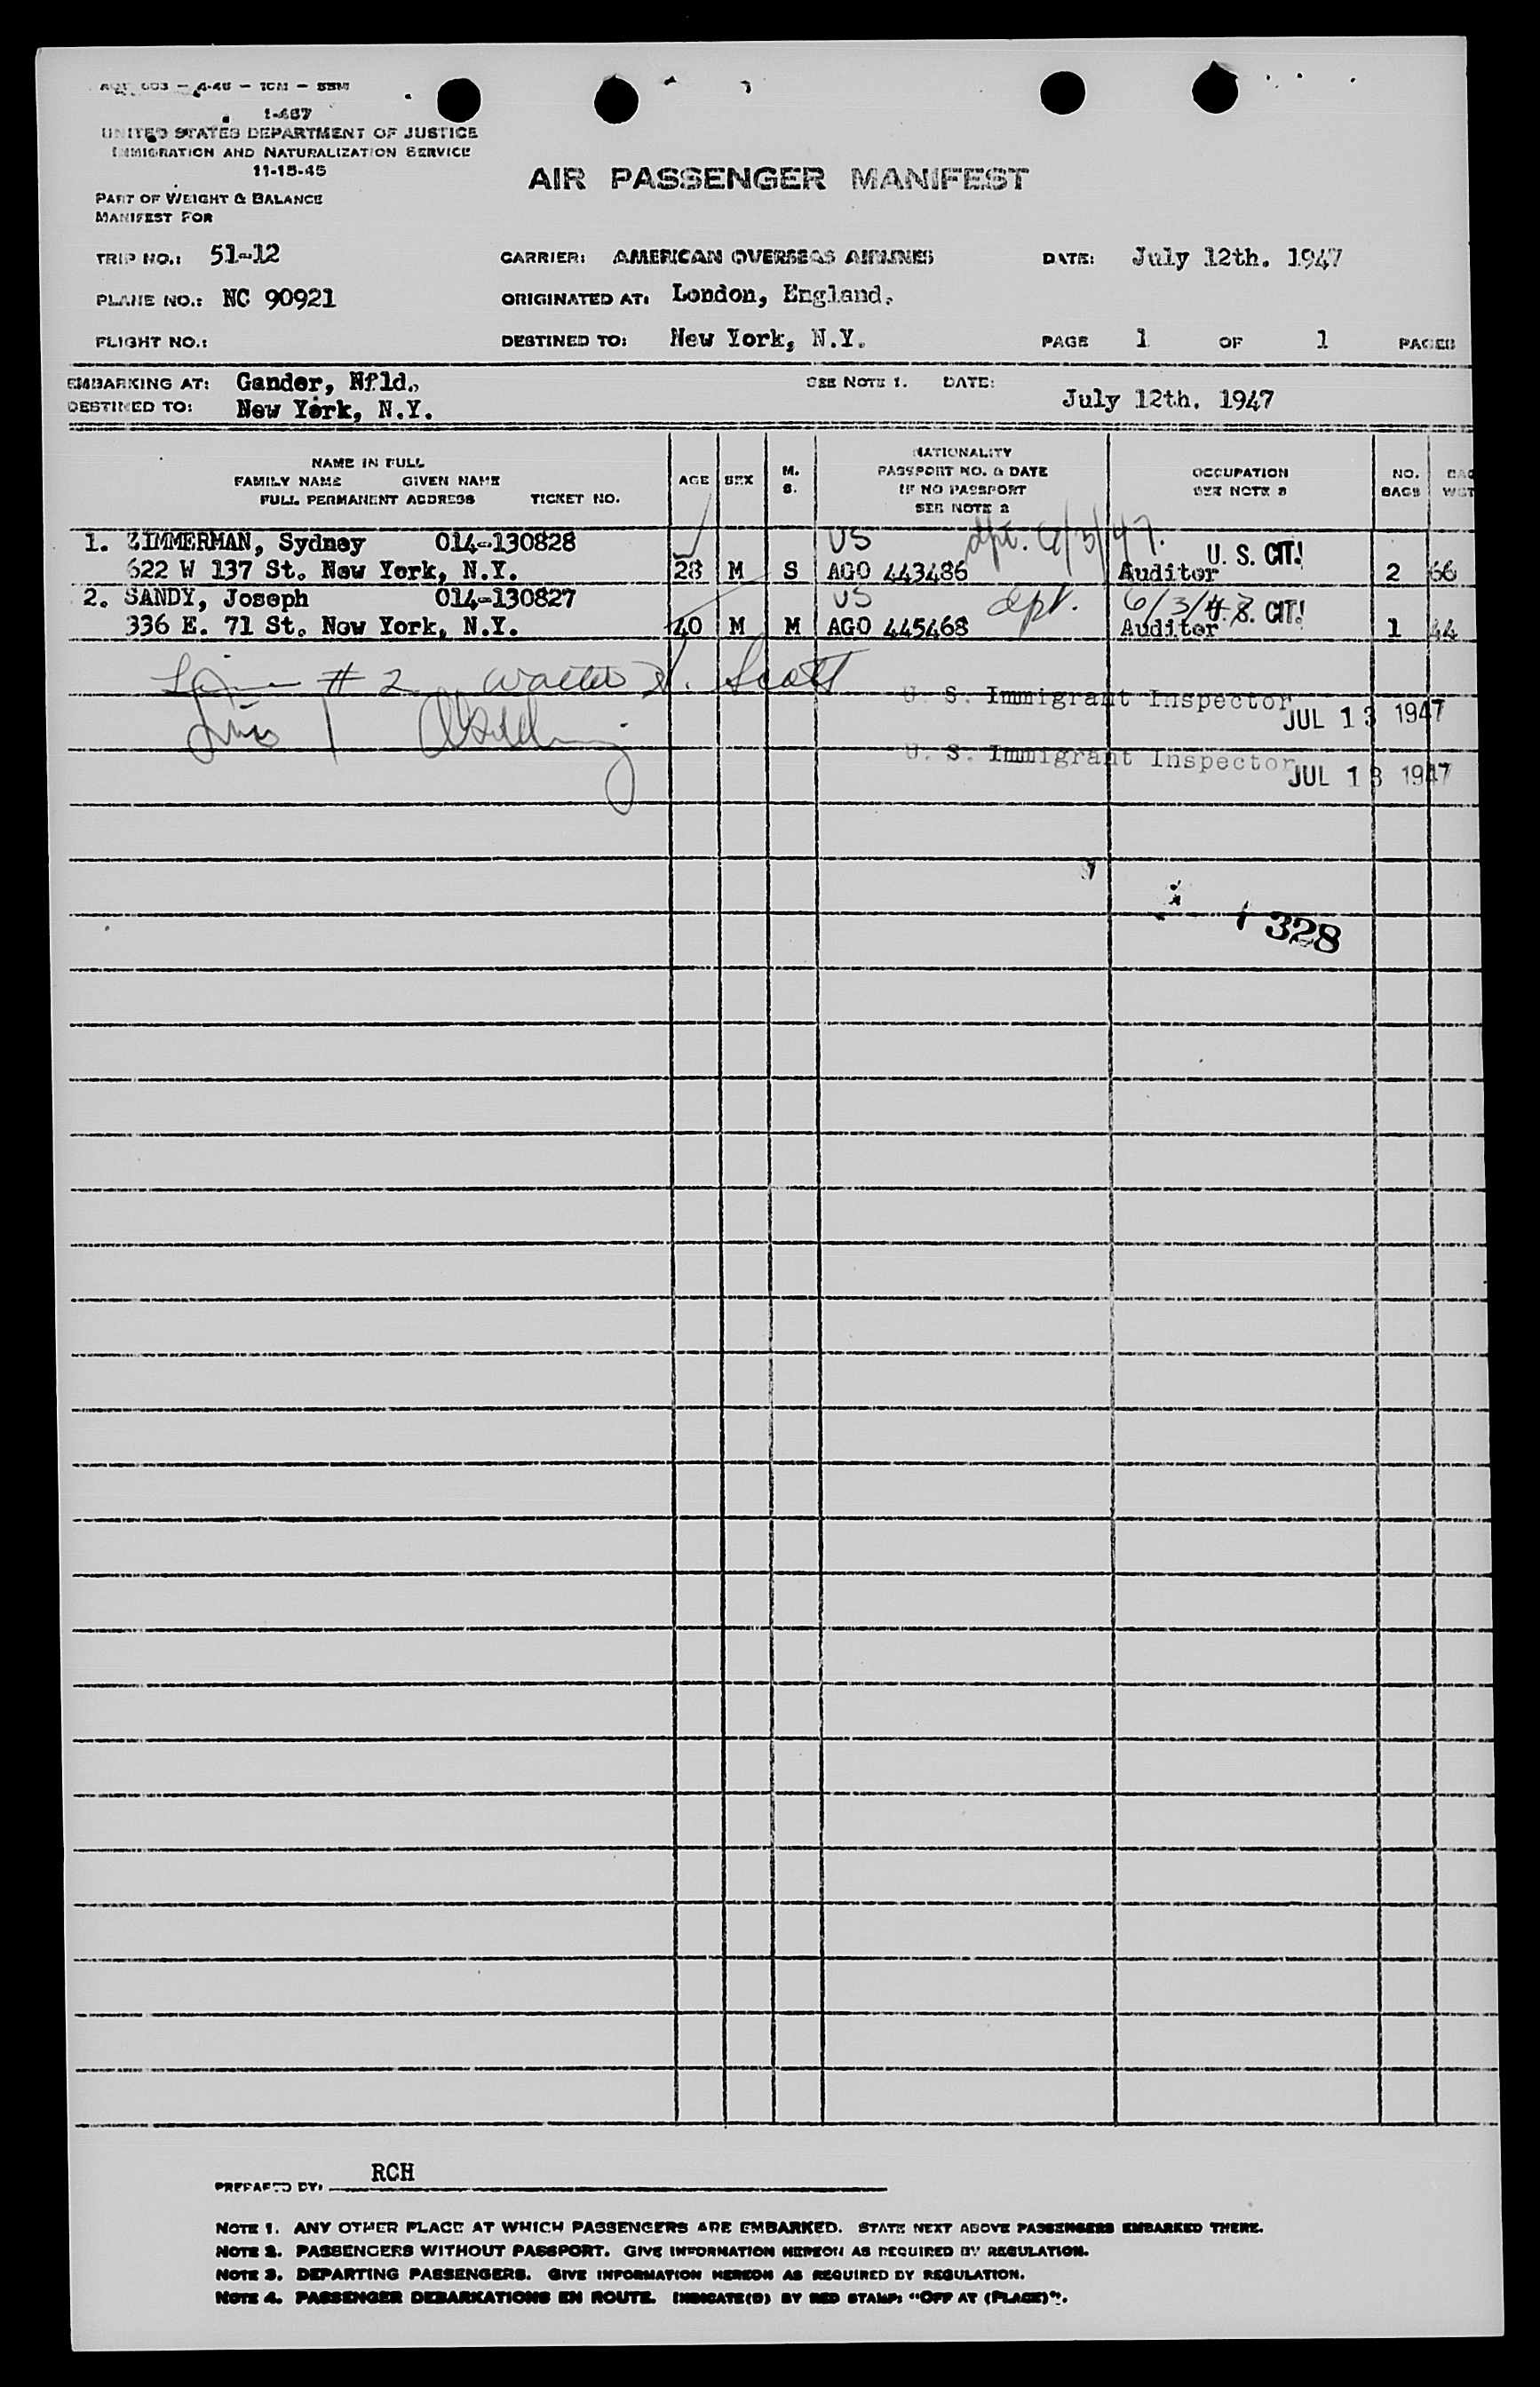 1-467
UNITED STATES DEPARTMENT OF JUSTICE
IMMIGRATION AND NATURALIZATION SERVICE
11-15-45
AIR PASSENGER MANIFEST
PART OF WEIGHT & BALANCE
MANIFEST FOR
TRIP NO.: 51-12 CARRIER: AMERICAN OVERSEAS AIRLINES DATE: July 12th. 1947
PLANE NO.: NC 90921 ORIGINATED AT: London, England.
FLIGHT NO.: DESTINED TO: New York, N.Y. PAGE 1 OF 1 PAGES
EMBARKING AT: Gander, Nfld. SEE NOTE 1. DATE:
DESTINED TO: New York, N.Y. July 12th. 1947
NAME IN FULL
FAMILY NAME GIVEN NAME
FULL PERMANENT ADDRESS TICKET NO.
AGE SEX M. S.
NATIONALITY
PASSPORT NO. & DATE
IF NO PASSPORT
SEE NOTE 2
OCCUPATION
SEE NOTE 3
NO. BAGS
1. ZIMMERMAN, Sydney 014-130828 US dpt. 6/3/47. U. S. CIT!
622 W 137 St. New York, N.Y. 28 M S AGO 443486 Auditor 2 66
2. SANDY, Joseph 014-130827 US dpt. 6/3/47. U. S. CIT!
336 E. 71 St. New York, N.Y. 40 M M AGO 445468 Auditor 1 44
Line # 2 Walter H. Scott
U. S. Immigrant Inspector JUL 13 1947
Line 1
U. S. Immigrant Inspector JUL 13 1947
328
PREPARED BY: RCH
NOTE 1. ANY OTHER PLACE AT WHICH PASSENGERS ARE EMBARKED. STATE NEXT ABOVE PASSENGERS EMBARKED THERE.
NOTE 2. PASSENGERS WITHOUT PASSPORT. GIVE INFORMATION HEREON AS REQUIRED BY REGULATION.
NOTE 3. DEPARTING PASSENGERS. GIVE INFORMATION HEREON AS REQUIRED BY REGULATION.
NOTE 4. PASSENGER DEBARKATIONS EN ROUTE. INDICATE(D) BY RED STAMP: "OFF AT (PLACE)".